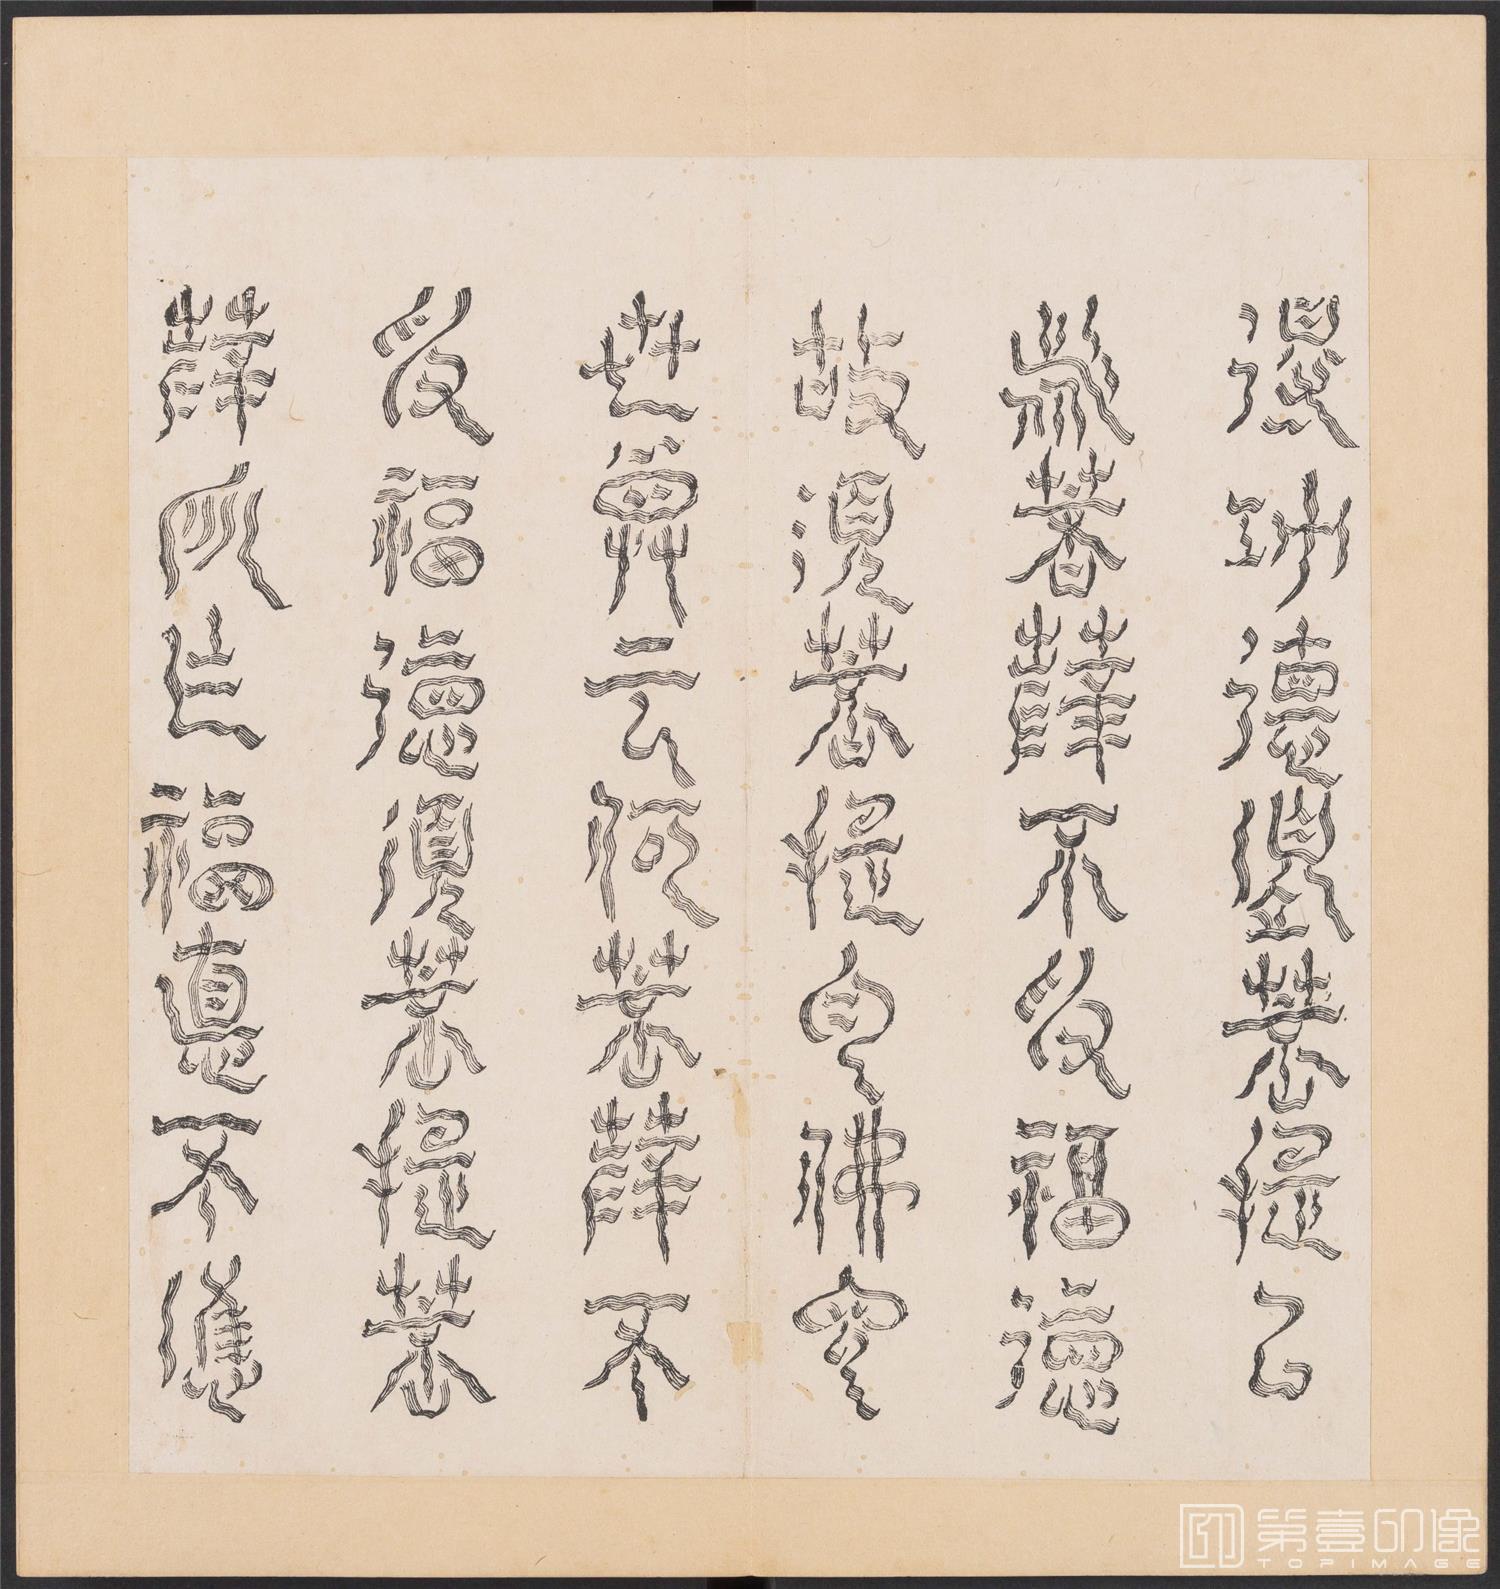 得功德須菩提以
諸菩薩不受福德
故須菩提白佛言
世尊云何菩薩不
受福德須菩提菩
薩所作福德不應
第壹印像
TOPIMAGE